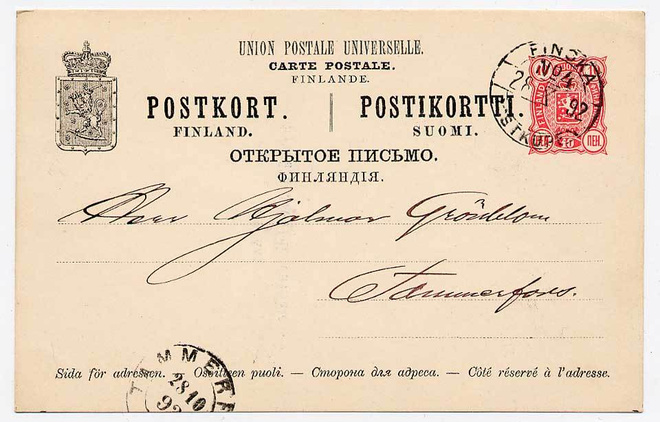 UNION POSTALE UNIVERSELLE.
CARTE POSTALE.
FINLANDE.
POSTKORT. POSTIKORTTI.
FINLAND. SUOMI.
ОТКРЫТОЕ ПИСЬМО.
ФИНЛЯНДІЯ.
FINSKA
No 4
92
10 ПЕН.
Herr Hjalmar
Tammerfors.
Sida för adressen. — Osoitteen puoli. — Сторона для адреса. — Côté réservé à l'adresse.
TAMMERF
28 10
92